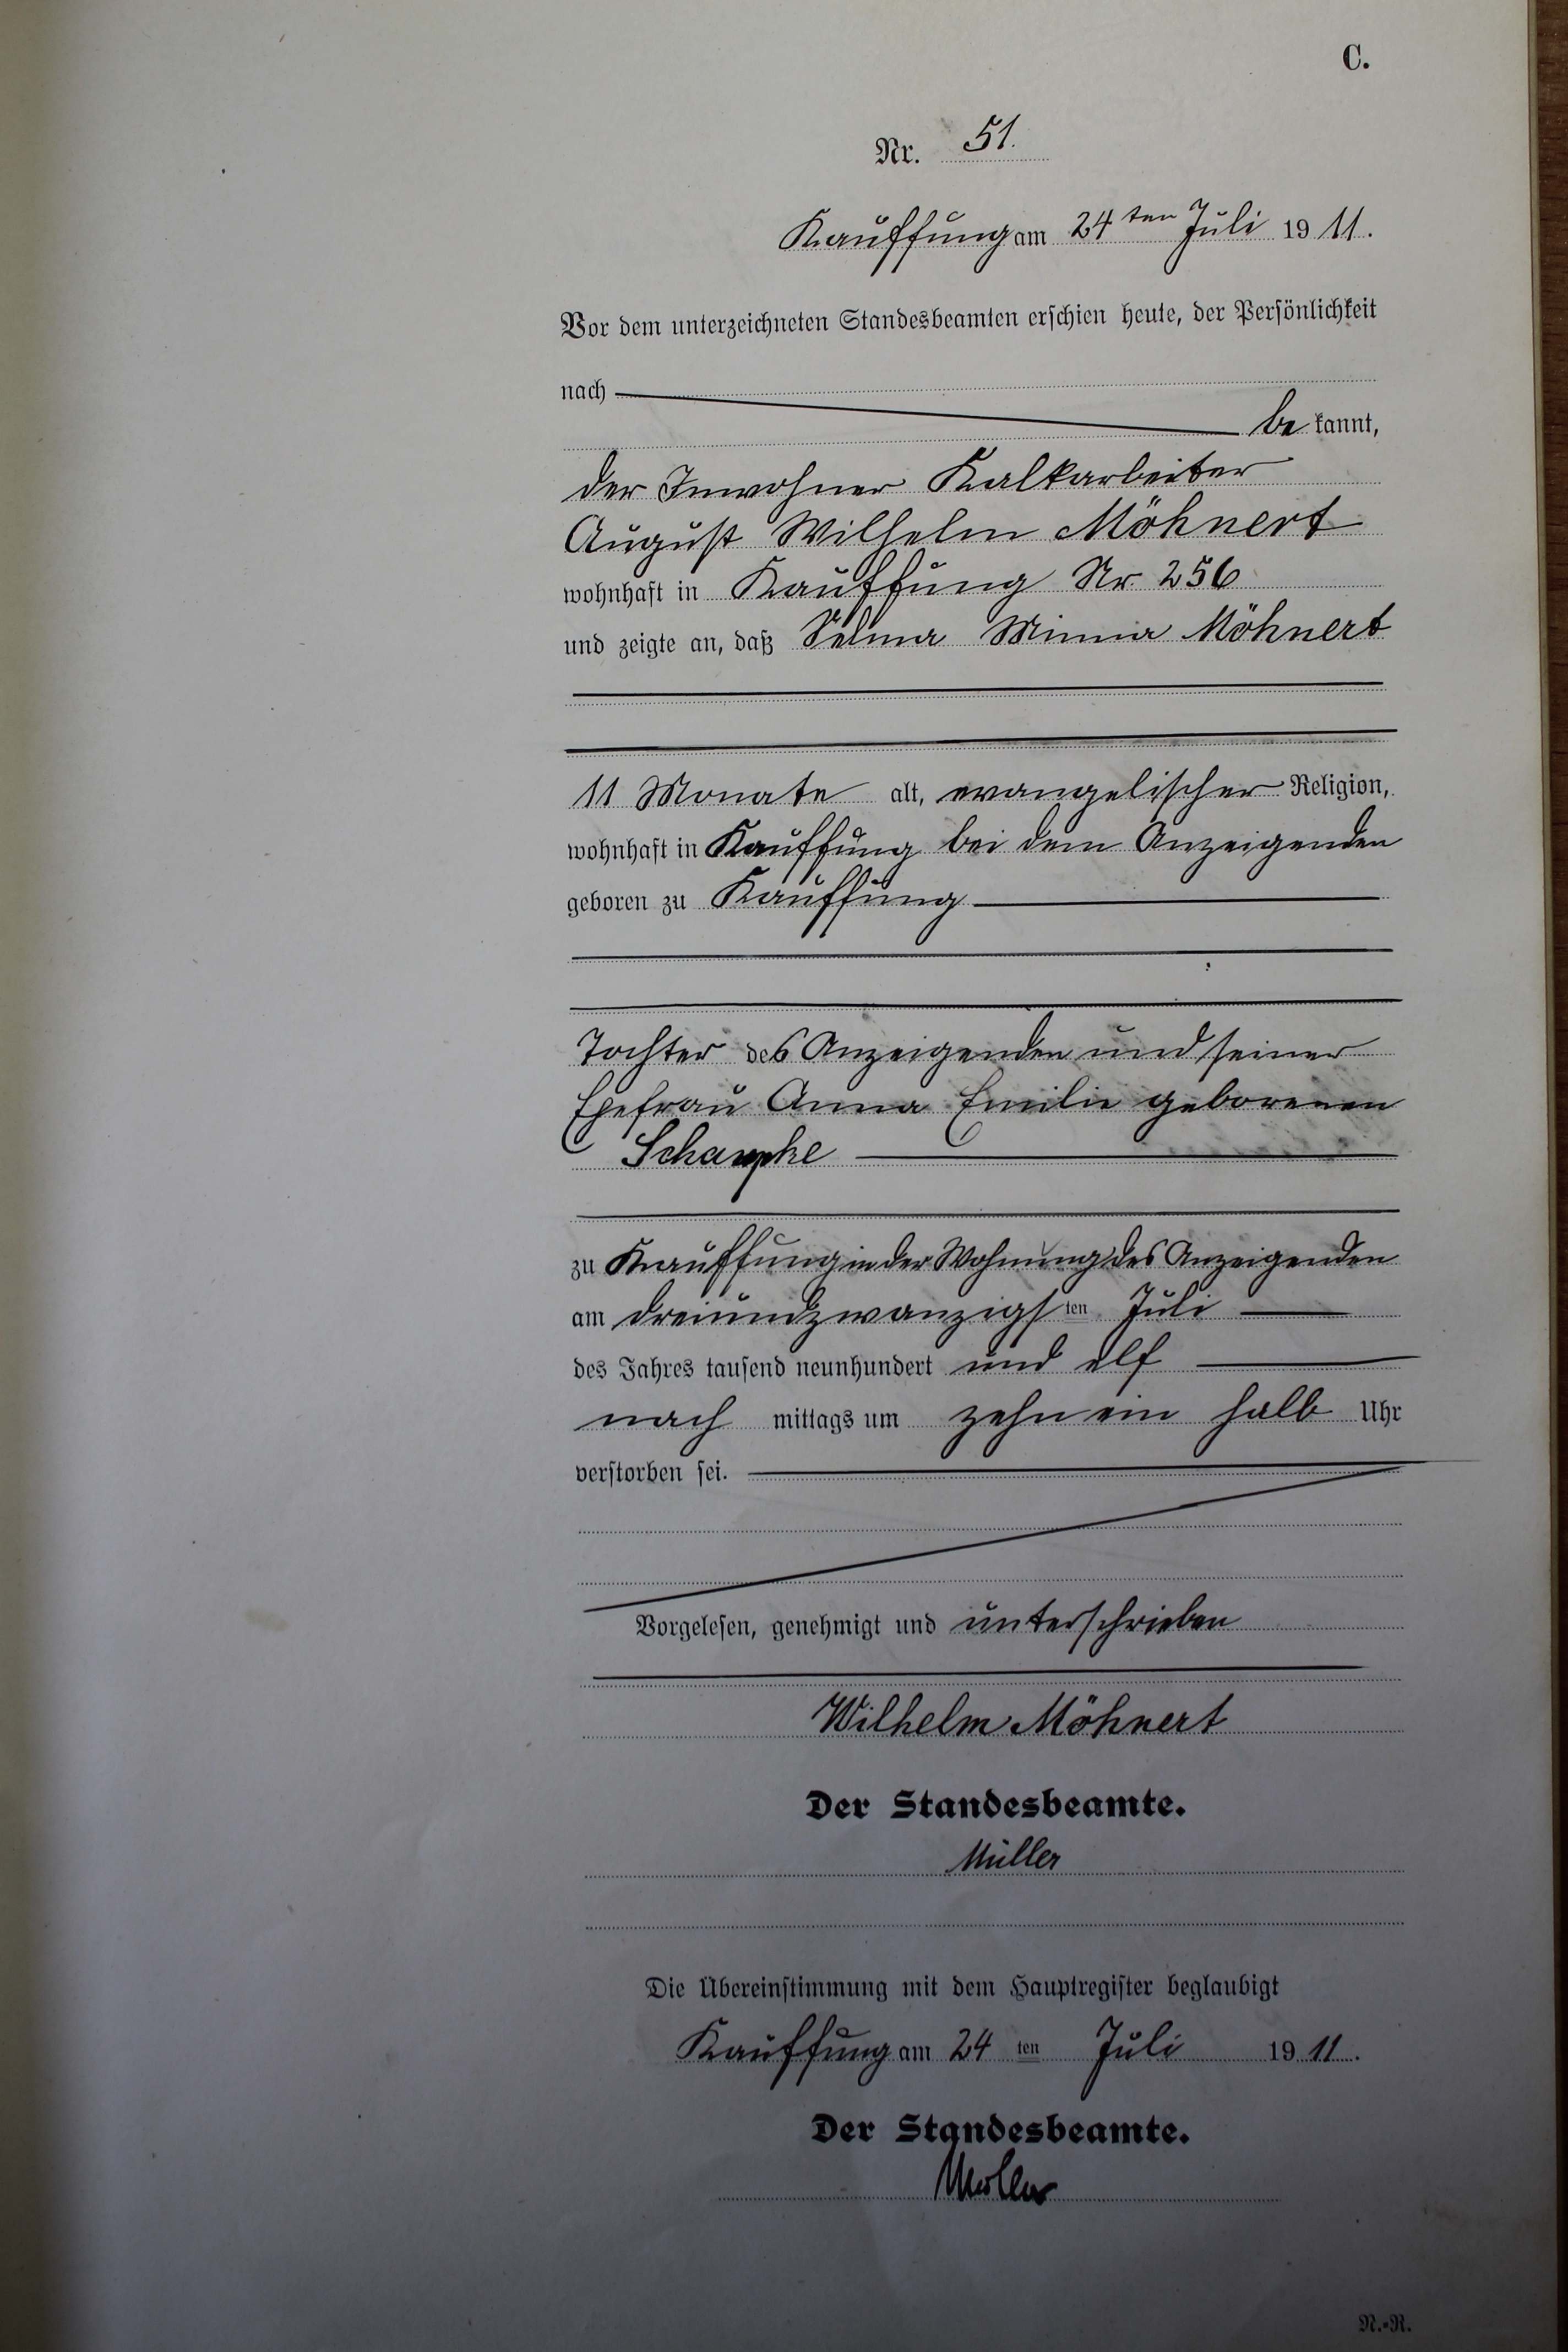 C.
Nr. 51.
Kauffung am 24ten Juli 1911.
Vor dem unterzeichneten Standesbeamten erschien heute, der Persönlichkeit
nach
bekannt,
der Inwohner Kalkarbeiter
August Wilhelm Möhnert
wohnhaft in Kauffung Nr. 256
und zeigte an, daß Selma Minna Möhnert
11 Monate alt, evangelischer Religion,
wohnhaft in Kauffung bei dem Anzeigenden
geboren zu Kauffung
Tochter des Anzeigenden und seiner
Ehefrau Anna Emilie geborenen
zu Kauffung in der Wohnung des Anzeigenden
am dreiundzwanzigsten Juli
des Jahres tausend neunhundert und elf
nach mittags um zehn ein halb Uhr
verstorben sei.
Vorgelesen, genehmigt und unterschrieben
Wilhelm Möhnert
Der Standesbeamte.
Müller
Die Übereinstimmung mit dem Hauptregister beglaubigt
Kauffung am 24ten Juli 1911.
Der Standesbeamte.
N.=R.